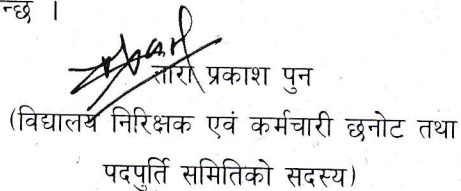 न्छ ।
तारा प्रकाश पुन
(विद्यालय निरिक्षक एवं कर्मचारी छनोट तथा
पदपुर्ति समितिको सदस्य)